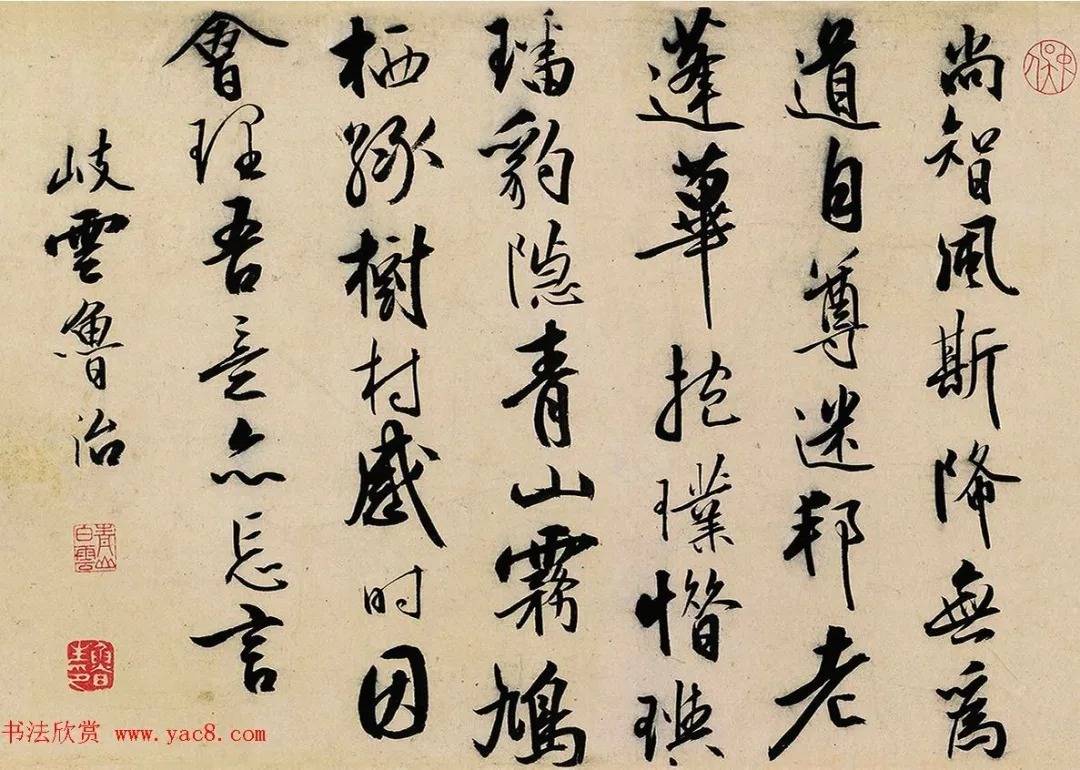 尚智風斯降無為
道自尊迷邦老
蓬蓽抱璞惜璵
璠豹隐青山霧鳩
栖綠樹村感时因
會理吾意亦忘言
岐雲魯治
青山白雲
书法欣赏 www.yac8.com